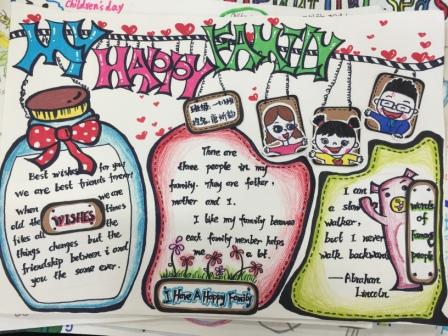 Children's day
MY HAPPY FAMILY
Best wishes for you
we are best friends forever
when we are
old the times
flies all the
WISHES
things changes but the
friendship between i and
you the same ever.
There are
three people in my
family. They are father,
mother and I.
I like my family because
each family member helps
me a lot.
I Have A Happy Family
I am
a slow
walker,
but I never
walk backwards.
——Abraham
Lincoln
words
of
famous
people